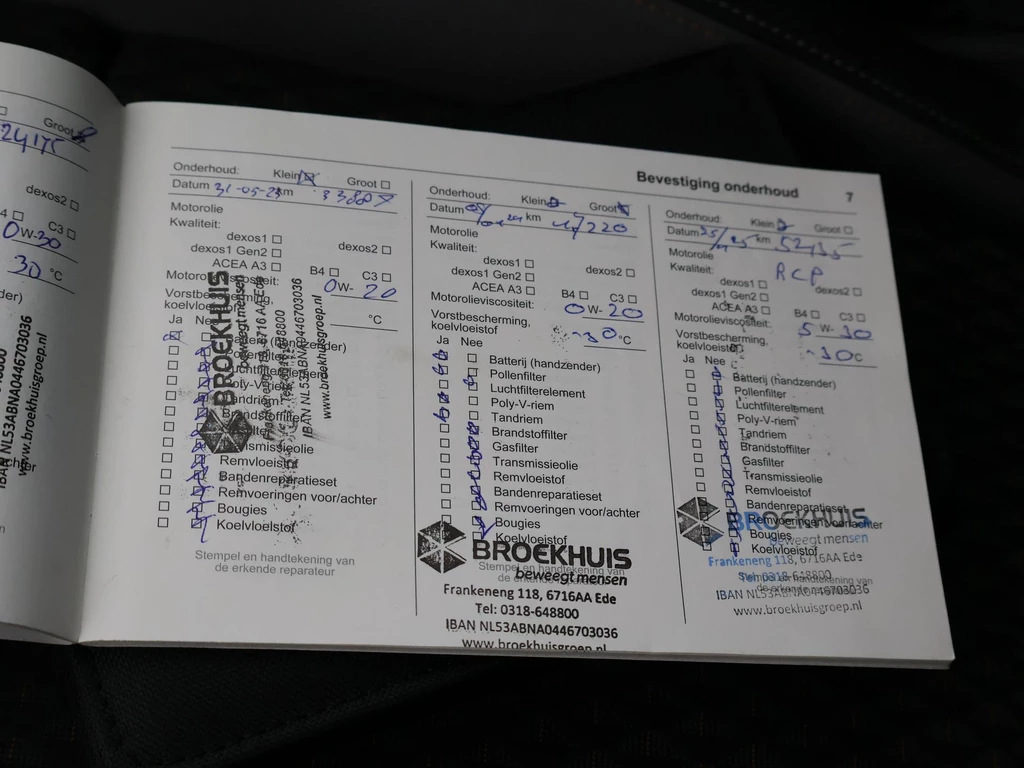 Groot
24175
dexos2
C3
0W-30
30 °C
IBAN NL53ABNA0446703036
www.broekhuisgroep.nl
Bevestiging onderhoud 7
Onderhoud: Klein Groot
Datum 31-05-23 km
Motorolie
Kwaliteit:
dexos1 dexos2
dexos1 Gen2
ACEA A3 B4 C3
Motorolieviscositeit: 0W-20
Vorstbescherming,
koelvloeistof °C
Ja Nee
Batterij (handzender)
Pollenfilter
Luchtfilterelement
Poly-V-riem
Tandriem
Brandstoffilter
Transmissieolie
Remvloeistof
Bandenreparatieset
Remvoeringen voor/achter
Bougies
Koelvloeistof
Stempel en handtekening van
de erkende reparateur
BROEKHUIS
beweegt mensen
6716 AA Ede
IBAN NL53ABNA0446703036
www.broekhuisgroep.nl
Onderhoud: Klein Groot
Datum km 47220
Motorolie
Kwaliteit:
dexos1 dexos2
dexos1 Gen2
ACEA A3 B4 C3
Motorolieviscositeit: 0W-20
Vorstbescherming,
koelvloeistof -30°C
Ja Nee
Batterij (handzender)
Pollenfilter
Luchtfilterelement
Poly-V-riem
Tandriem
Brandstoffilter
Gasfilter
Transmissieolie
Remvloeistof
Bandenreparatieset
Remvoeringen voor/achter
Bougies
Koelvloeistof
Stempel en handtekening van
de erkende reparateur
BROEKHUIS
beweegt mensen
Frankeneng 118, 6716AA Ede
Tel: 0318-648800
IBAN NL53ABNA0446703036
www.broekhuisgroep.nl
Onderhoud: Klein Groot
Datum km
Motorolie
Kwaliteit: RCP
dexos1 dexos2
dexos1 Gen2
ACEA A3 B4 C3
Motorolieviscositeit: 5W-30
Vorstbescherming,
koelvloeistof -30C
Ja Nee
Batterij (handzender)
Pollenfilter
Luchtfilterelement
Poly-V-riem
Tandriem
Brandstoffilter
Gasfilter
Transmissieolie
Remvloeistof
Bandenreparatieset
Remvoeringen voor/achter
Bougies
Koelvloeistof
BROEKHUIS
beweegt mensen
Frankeneng 118, 6716AA Ede
Tel: 0318-648800
IBAN NL53ABNA0446703036
www.broekhuisgroep.nl